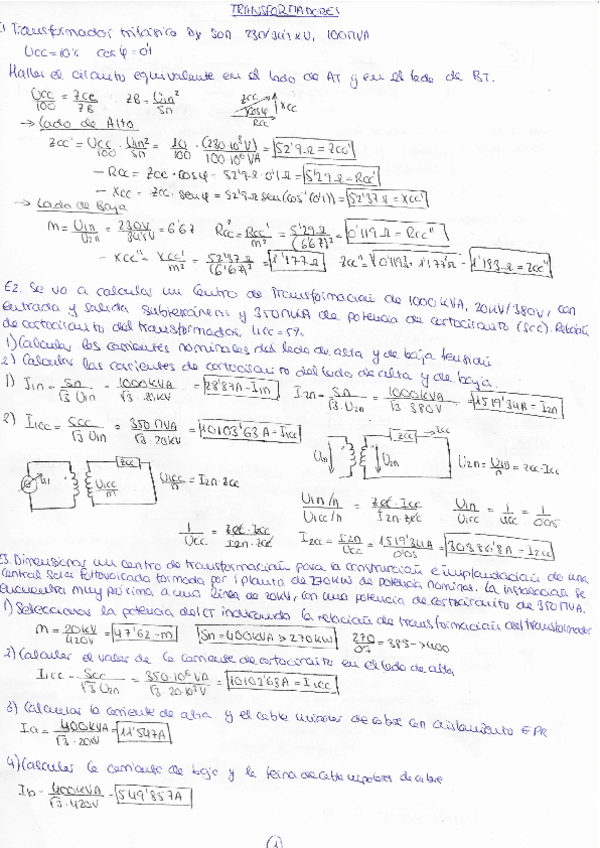 TRANSFORMADORES
E1 Transformador trifásico Dy Son 230/34'5 kV, 100 MVA
Ucc = 10% cos φ = 0'1
Hallar el circuito equivalente en el lado de AT y en el lado de BT.
Ucc/100 = Zcc/ZB ZB = U1n²/Sn Zcc cosφ Rcc Xcc
→ Lado de Alta
Zcc' = Ucc/100 · U1n²/Sn = 10/100 · (230·10³V)²/100·10⁶VA = 52'9 Ω = Zcc'
- Rcc = Zcc · cos φ = 52'9 Ω · 0'1 Ω = 5'29 Ω = Rcc'
- Xcc = Zcc · sen φ = 52'9 Ω sen(cos⁻¹(0'1)) = 52'37 Ω = Xcc'
→ Lado de Baja
m = U1n/U2n = 230V/34'5V = 6'67 Rcc'' = Rcc'/m² = 5'29 Ω/(6'67)² = 0'119 Ω = Rcc''
- Xcc'' = Xcc'/m² = 52'37 Ω/(6'67)² = 1'177 Ω Zcc'' = √0'119² + 1'177² Ω = 1'183 Ω = Zcc''
E2. Se va a calcular un Centro de Transformación de 1000 KVA, 20KV/380V, con
entrada y salida subterránea y 350 MVA de potencia de cortocircuito (Scc). Relación
de cortocircuito del transformador, Ucc = 5%.
1) Calcular las corrientes nominales del lado de alta y de baja tensión
2) Calcular las corrientes de cortocircuito del lado de alta y de baja.
1) I1n = Sn/√3 U1n = 1000KVA/√3 · 20KV = 28'87A = I1n I2n = Sn/√3 · U2n = 1000KVA/√3 · 380V = 1519'34A = I2n
2) I1cc = Scc/√3 U1n = 350 MVA/√3 · 20KV = 10103'63A = I1cc
Zcc Icc
U1n U2n U2n = U1n/n = Zcc · Icc
U1 U1cc/m Zcc U1cc/n = I2n · Zcc
U1n/n / U1cc/n = Zcc · Icc / I2n · Zcc U1n/U1cc = 1/Ucc = 1/0'05
1/Ucc = Zcc · Icc / I2n · Zcc I2cc = I2n/Ucc = 1519'34A/0'05 = 30386'8A = I2cc
E3. Dimensionar un centro de transformación para la construcción e implantación de una
Central Solar Fotovoltaica formada por 1 planta de 270KW de potencia nominal. La instalación se
encuentra muy próxima a una línea de 20KV, con una potencia de cortocircuito de 350 MVA.
1) Seleccionar la potencia del CT indicando la relación de transformación del transformador
m = 20KV/420V = 47'62 = m Sn = 400KVA > 270KW 270/0'7 = 385 → 400
2) Calcular el valor de la corriente de cortocircuito en el lado de alta
I1cc = Scc/√3 U2n = 350·10⁶ VA/√3 · 20·10³V = 10103'63A = I1cc
3) Calcular la corriente de alta y el cable unipolar de cobre con aislamiento EPR
Ia = 400KVA/√3 · 20KV = 11'547A
4) Calcular la corriente de baja y la terna de cable unipolar de cobre
Ib = 400KVA/√3 · 420V = 549'857A
1